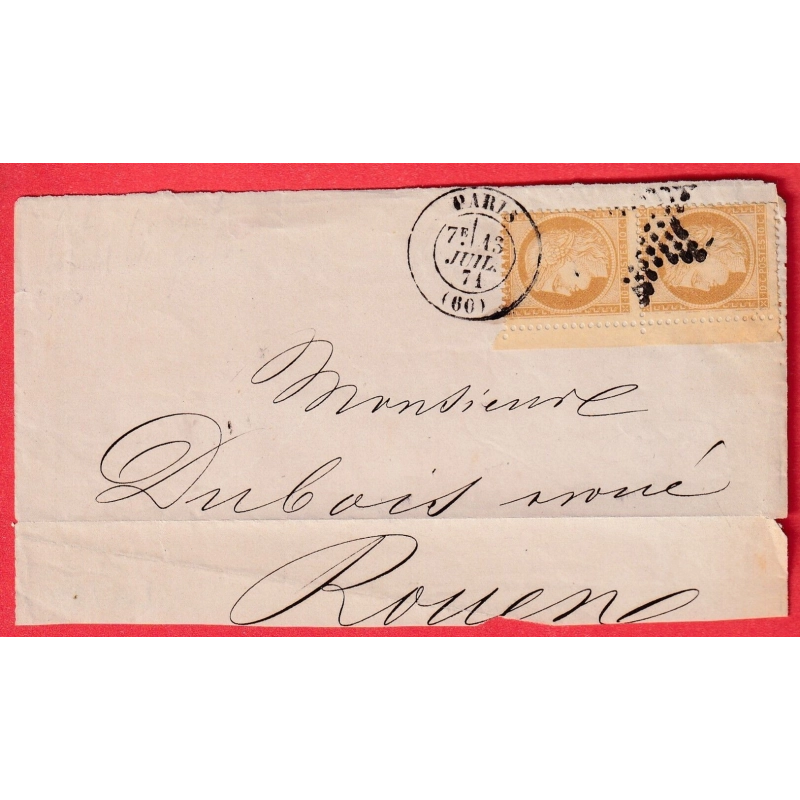 PARIS
7E 13
JUIL.
71
(60)
Monsieur
Dubois avoué
Rouen